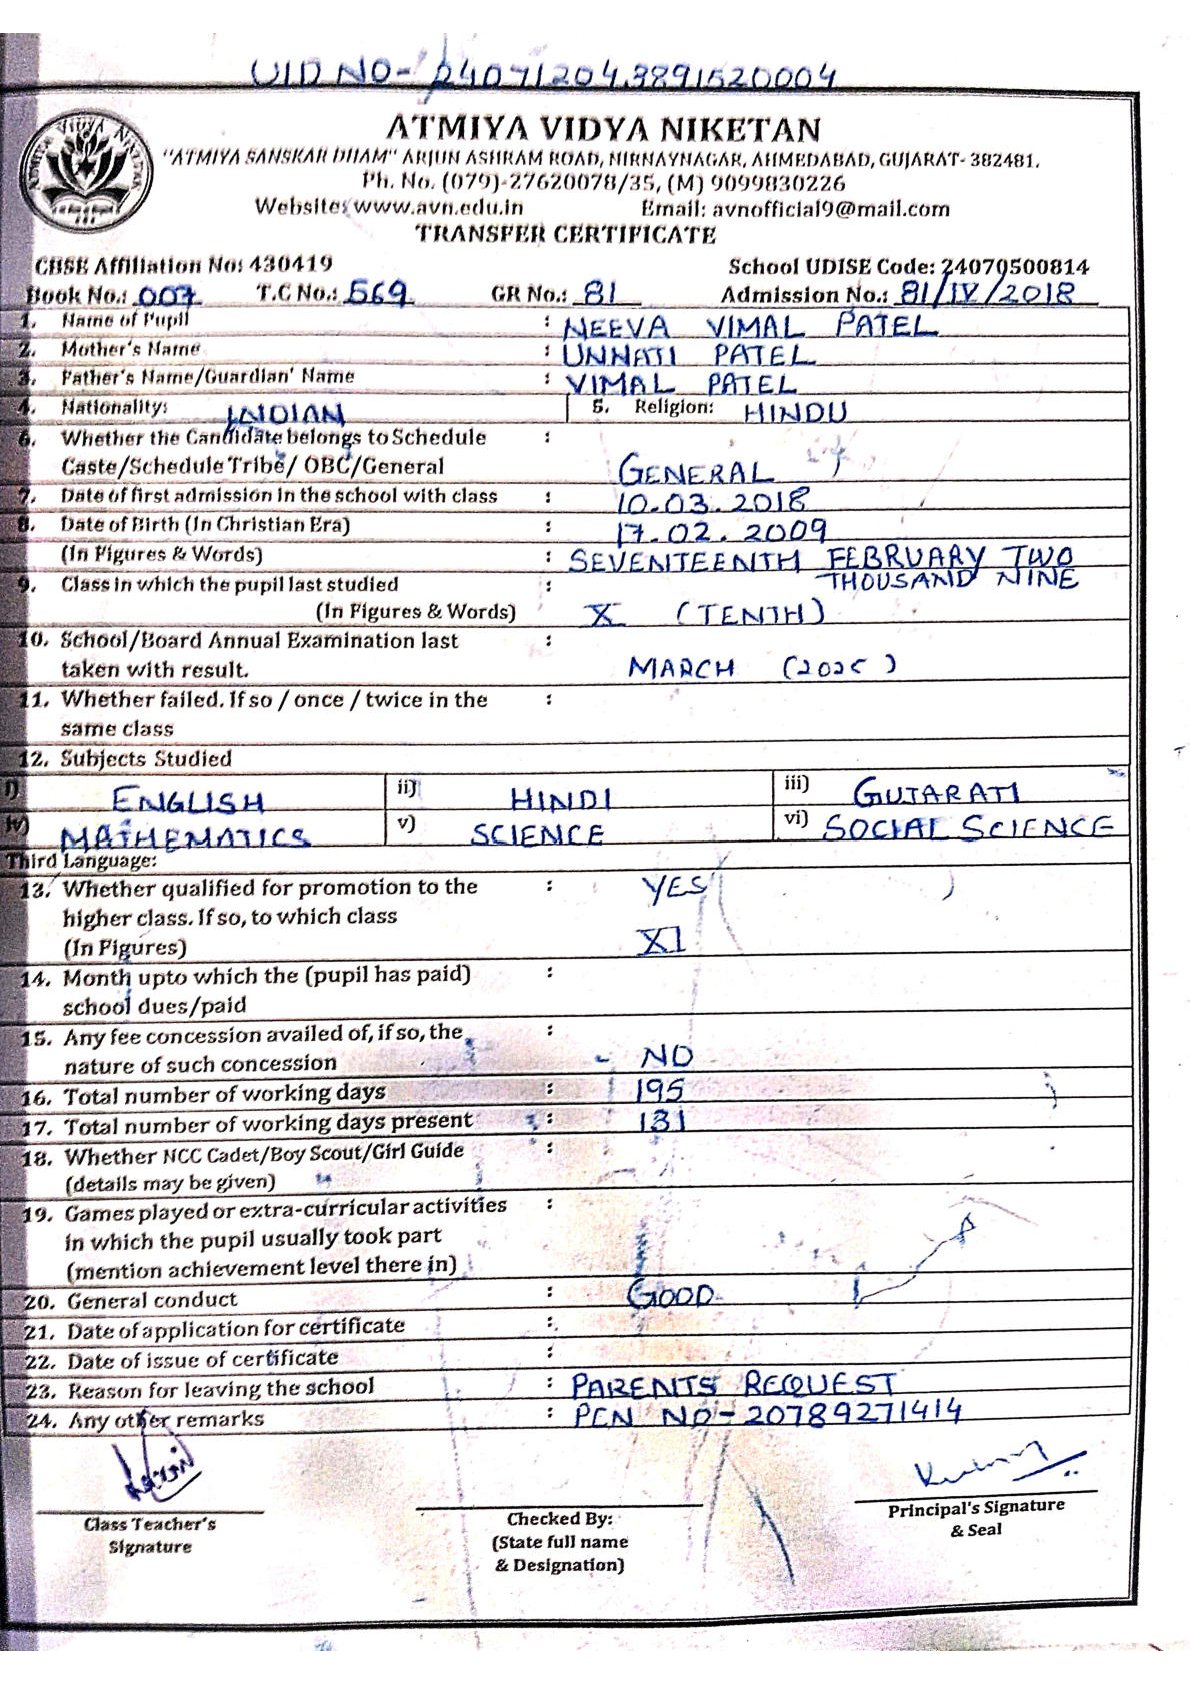 UID NO- 240712043891520004
ATMIYA VIDYA NIKETAN
"ATMIYA SANSKAR DHAM" ARJUN ASHRAM ROAD, NIRNAYNAGAR, AHMEDABAD, GUJARAT- 382481.
Ph. No. (079)-27620078/35, (M) 9099830226
Website: www.avn.edu.in Email: avnofficial9@mail.com
TRANSFER CERTIFICATE
CBSE Affiliation No: 430419 School UDISE Code: 24070500814
Book No.: 007 T.C No.: 569 GR No.: 81 Admission No.: 81/IV/2018
1. Name of Pupil : NEEVA VIMAL PATEL
2. Mother's Name : UNNATI PATEL
3. Father's Name/Guardian' Name : VIMAL PATEL
4. Nationality: INDIAN 5. Religion: HINDU
6. Whether the Candidate belongs to Schedule :
Caste/Schedule Tribe/ OBC/General GENERAL
7. Date of first admission in the school with class : 10.03.2018
8. Date of Birth (In Christian Era) : 17.02.2009
(In Figures & Words) : SEVENTEENTH FEBRUARY TWO
THOUSAND NINE
9. Class in which the pupil last studied :
(In Figures & Words) X (TENTH)
10. School/Board Annual Examination last :
taken with result. MARCH (2025)
11. Whether failed. If so / once / twice in the :
same class
12. Subjects Studied
i) ENGLISH ii) HINDI iii) GUJARATI
iv) MATHEMATICS v) SCIENCE vi) SOCIAL SCIENCE
Third Language:
13. Whether qualified for promotion to the : YES
higher class. If so, to which class
(In Figures) XI
14. Month upto which the (pupil has paid) :
school dues/paid
15. Any fee concession availed of, if so, the :
nature of such concession - NO
16. Total number of working days : 195
17. Total number of working days present : 131
18. Whether NCC Cadet/Boy Scout/Girl Guide :
(details may be given)
19. Games played or extra-curricular activities :
in which the pupil usually took part
(mention achievement level there in)
20. General conduct : GOOD
21. Date of application for certificate :
22. Date of issue of certificate :
23. Reason for leaving the school : PARENTS REQUEST
24. Any other remarks : PEN NO- 20789271414
Class Teacher's
Signature
Checked By:
(State full name
& Designation)
Principal's Signature
& Seal